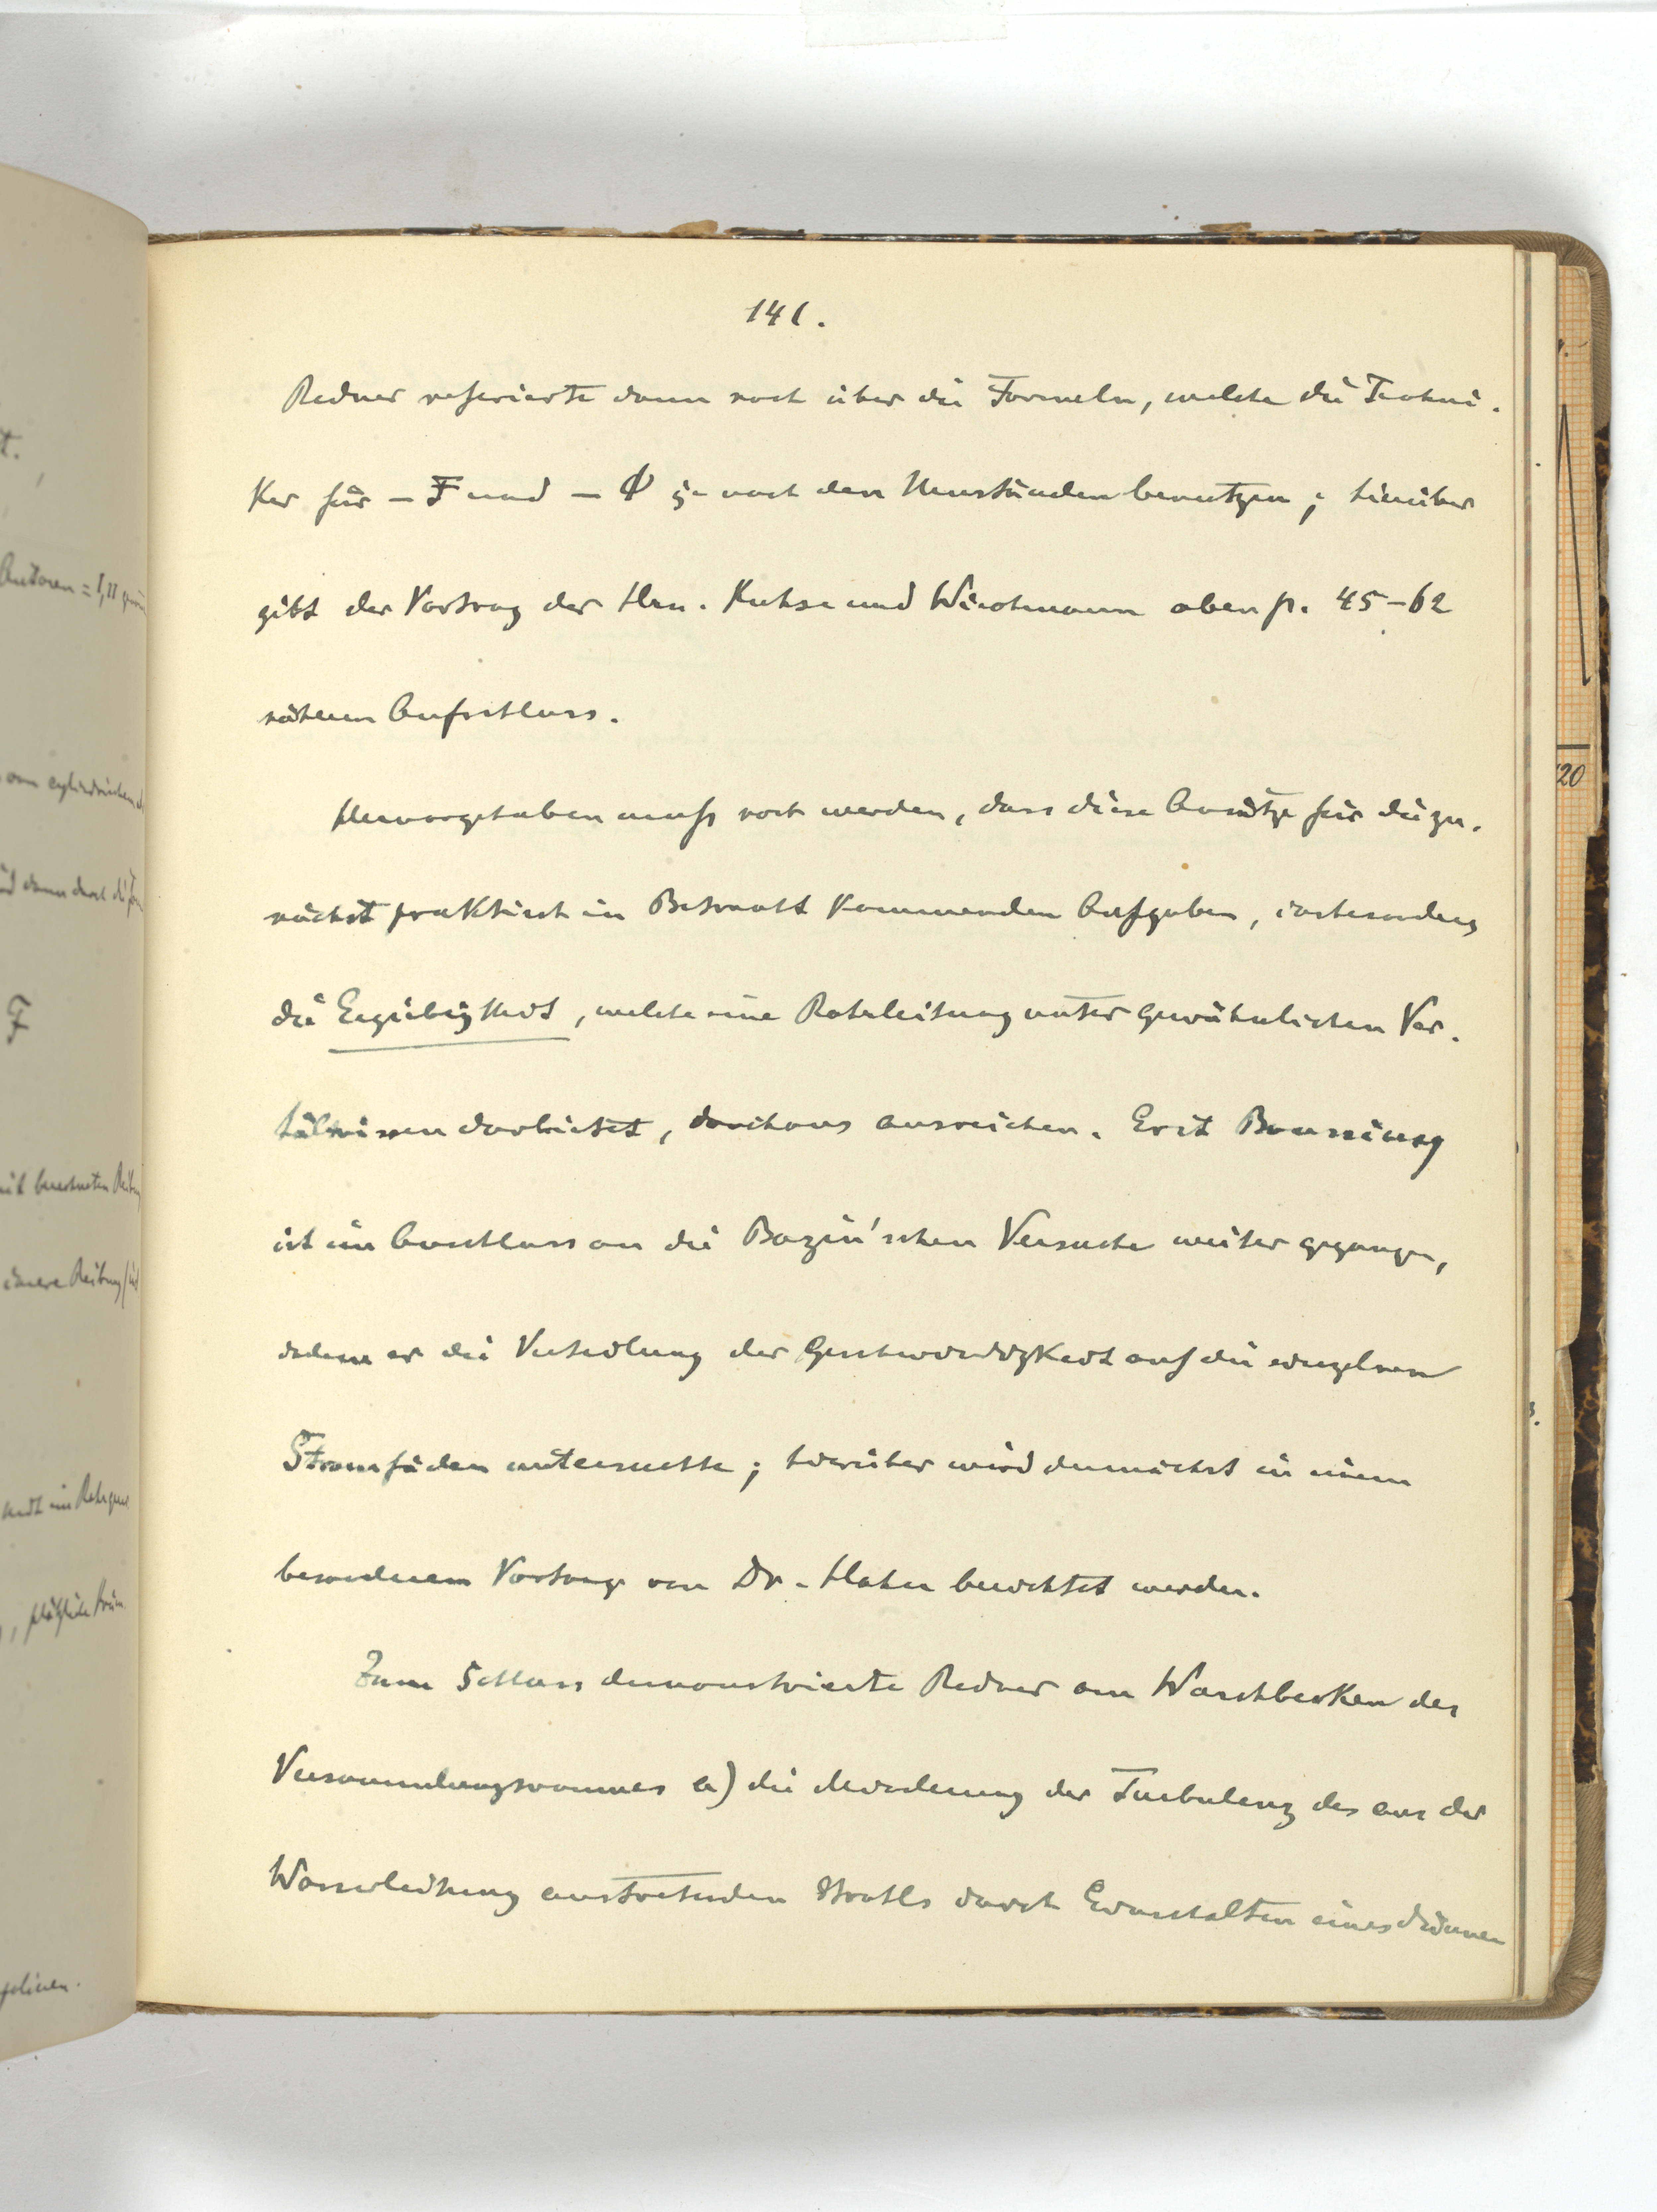 141.
Redner referierte dann noch über die Formeln, welche die Techni-
ker für – F und – Φ je nach den Umständen benutzen; hierüber
gibt der Vortrag der Hrn. Kuhse und Wiechmann oben p. 45–62
näheren Aufschluss.
Hervorgehoben muss noch werden, dass diese Ansätze für die zu-
nächst praktisch in Betracht kommenden Aufgaben, insbesondere
die Ergiebigkeit, welche eine Rohrleitung unter gewöhnlichen Ver-
hältnissen darbietet, durchaus ausreichen. Erst Boussinesq
ist im Anschluss an die Bazin'schen Versuche weiter gegangen,
indem er die Verteilung der Geschwindigkeit auf die einzelnen
Stromfäden untersuchte; hierüber wird demnächst in einem
besonderen Vortrage von Dr. Hahn berichtet werden.
Zum Schluss demonstrierte Redner am Waschbecken des
Versammlungsraumes a) die Minderung der Turbulenz des aus der
Wasserleitung austretenden Strahls durch Einschalten eines dünnen
t.
Autoren = 1,11
vom cylindrischen
F
mit berechneten
innere Reibung
20